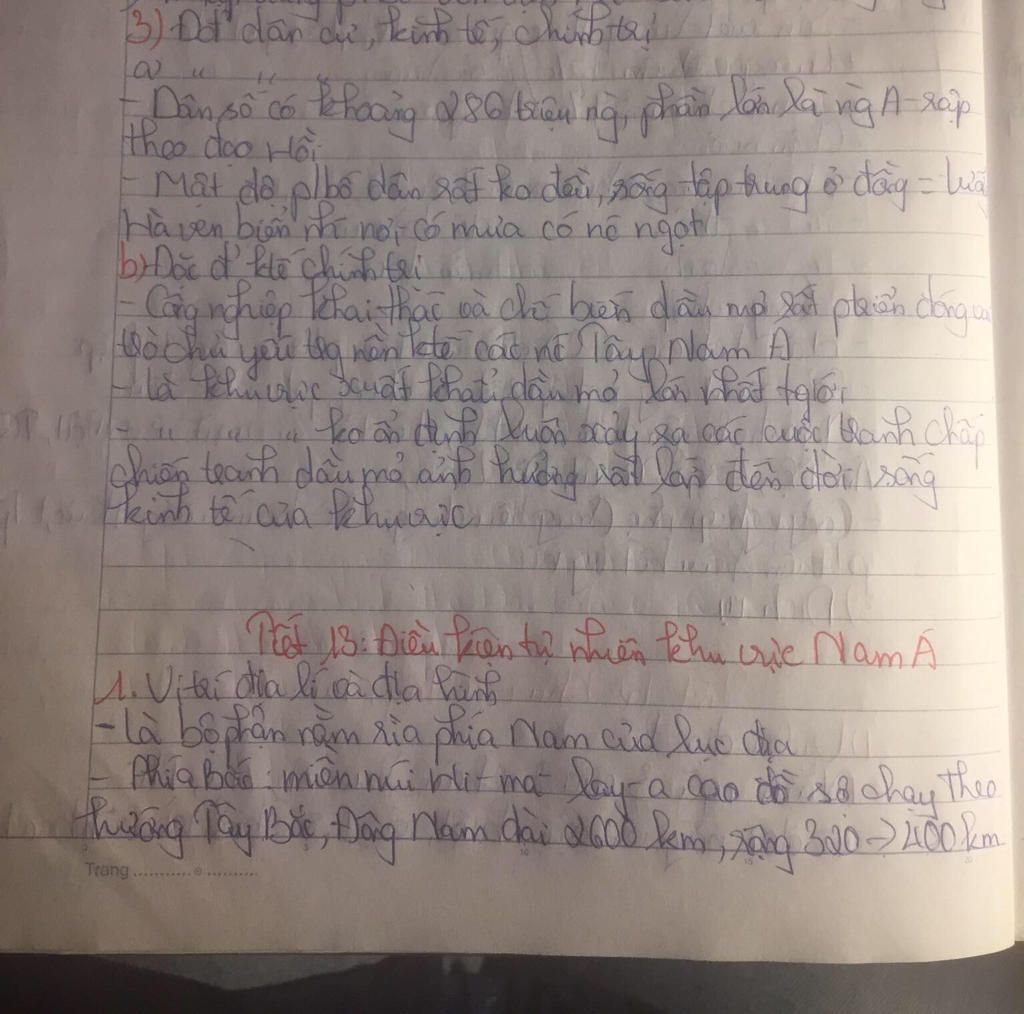 3) Đđ dân cư, kinh tế, chính trị
a) " " "
- Dân số có khoảng 286 triệu ng, phần lớn là ng A-rập
theo đạo Hồi
- Mật độ p/bố dân rất ko đều, sống tập trung ở đồng = lưỡ
Hà ven biển nh nơi có mưa có nc ngọt
b) Đặc đ' ktế chính trị
- Công nghiệp khai thác và chế biến dầu mỏ rất ptriển đóng vai
trò chủ yếu trg nền ktế các nc Tây Nam Á
- là khu vực xuất khẩu dầu mỏ lớn nhất tgiới
- " " " ko ổn định luôn xảy ra các cuộc tranh chấp
chiến tranh dầu mỏ ảnh hưởng rất lớn đến đời sống
kinh tế của khu vực
Tiết 13: Điều kiện tự nhiên khu vực Nam Á
1. Vị trí địa lí và địa hình
- Là bộ phận nằm rìa phía Nam của lục địa
- Phía Bắc: miền núi Hi-ma-lay-a cao đồ sộ chạy theo
hướng Tây Bắc, Đông Nam dài 2600 km, rộng 320 -> 400 km
Trang